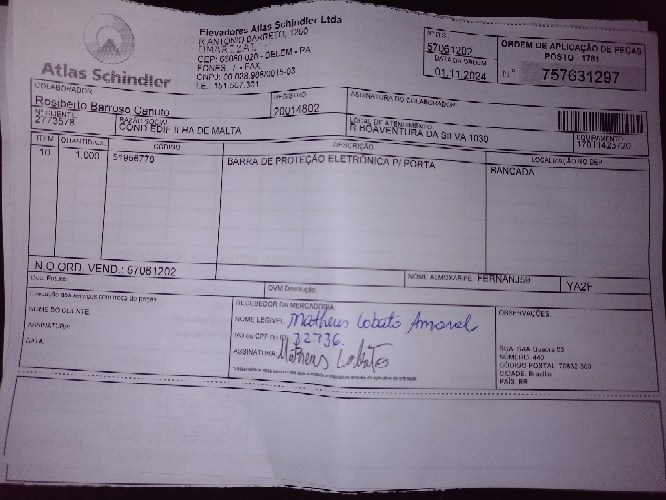 Atlas Schindler
Elevadores Atlas Schindler Ltda
R ANTONIO BARRETO, 1200
UMARIZAL
CEP: 66060-020 - BELEM - PA
FONES: / - FAX:
CNPJ: 00.028.986/0015-03
I.E.: 151.567.301
Nº O/S.
57061202
DATA DA ORDEM
01.11.2024
ORDEM DE APLICAÇÃO DE PEÇAS
POSTO 1761
Nº 757631297
COLABORADOR
Rosiberto Barroso Canuto
REGISTRO
20014802
ASSINATURA DO COLABORADOR
Nº CLIENTE
2773579
RAZÃO SOCIAL
COND EDIF ILHA DE MALTA
LOCAL DE ATENDIMENTO
R BOAVENTURA DA SILVA 1030
EQUIPAMENTO
17011423720
ITEM QUANTIDADE CÓDIGO DESCRIÇÃO LOCALIZAÇÃO NO DEP.
10 1,000 51966770 BARRA DE PROTEÇÃO ELETRÔNICA P/ PORTA BANCADA
N.O ORD. VEND.: 57061202
NOME ALMOXARIFE: FERNANJ59 YA2F
Doc. Futura:
OVM Devolução:
Execução dos serviços com troca de peças
NOME DO CLIENTE:
ASSINATURA:
DATA:
RECEBEDOR DA MERCADORIA
NOME LEGÍVEL: Matheus Lobato Amaral
RG ou CPF ou ID: 32736.
ASSINATURA: Matheus Lobato
OBSERVAÇÕES:
NÚMERO: 440
CÓDIGO POSTAL: 70632-300
CIDADE: Brasília
PAÍS: BR